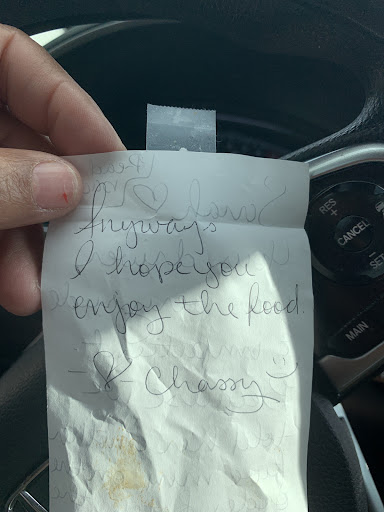 Anyways
I hope you
enjoy the food.
- Chassy
RES
+
CANCEL
SET
MAIN